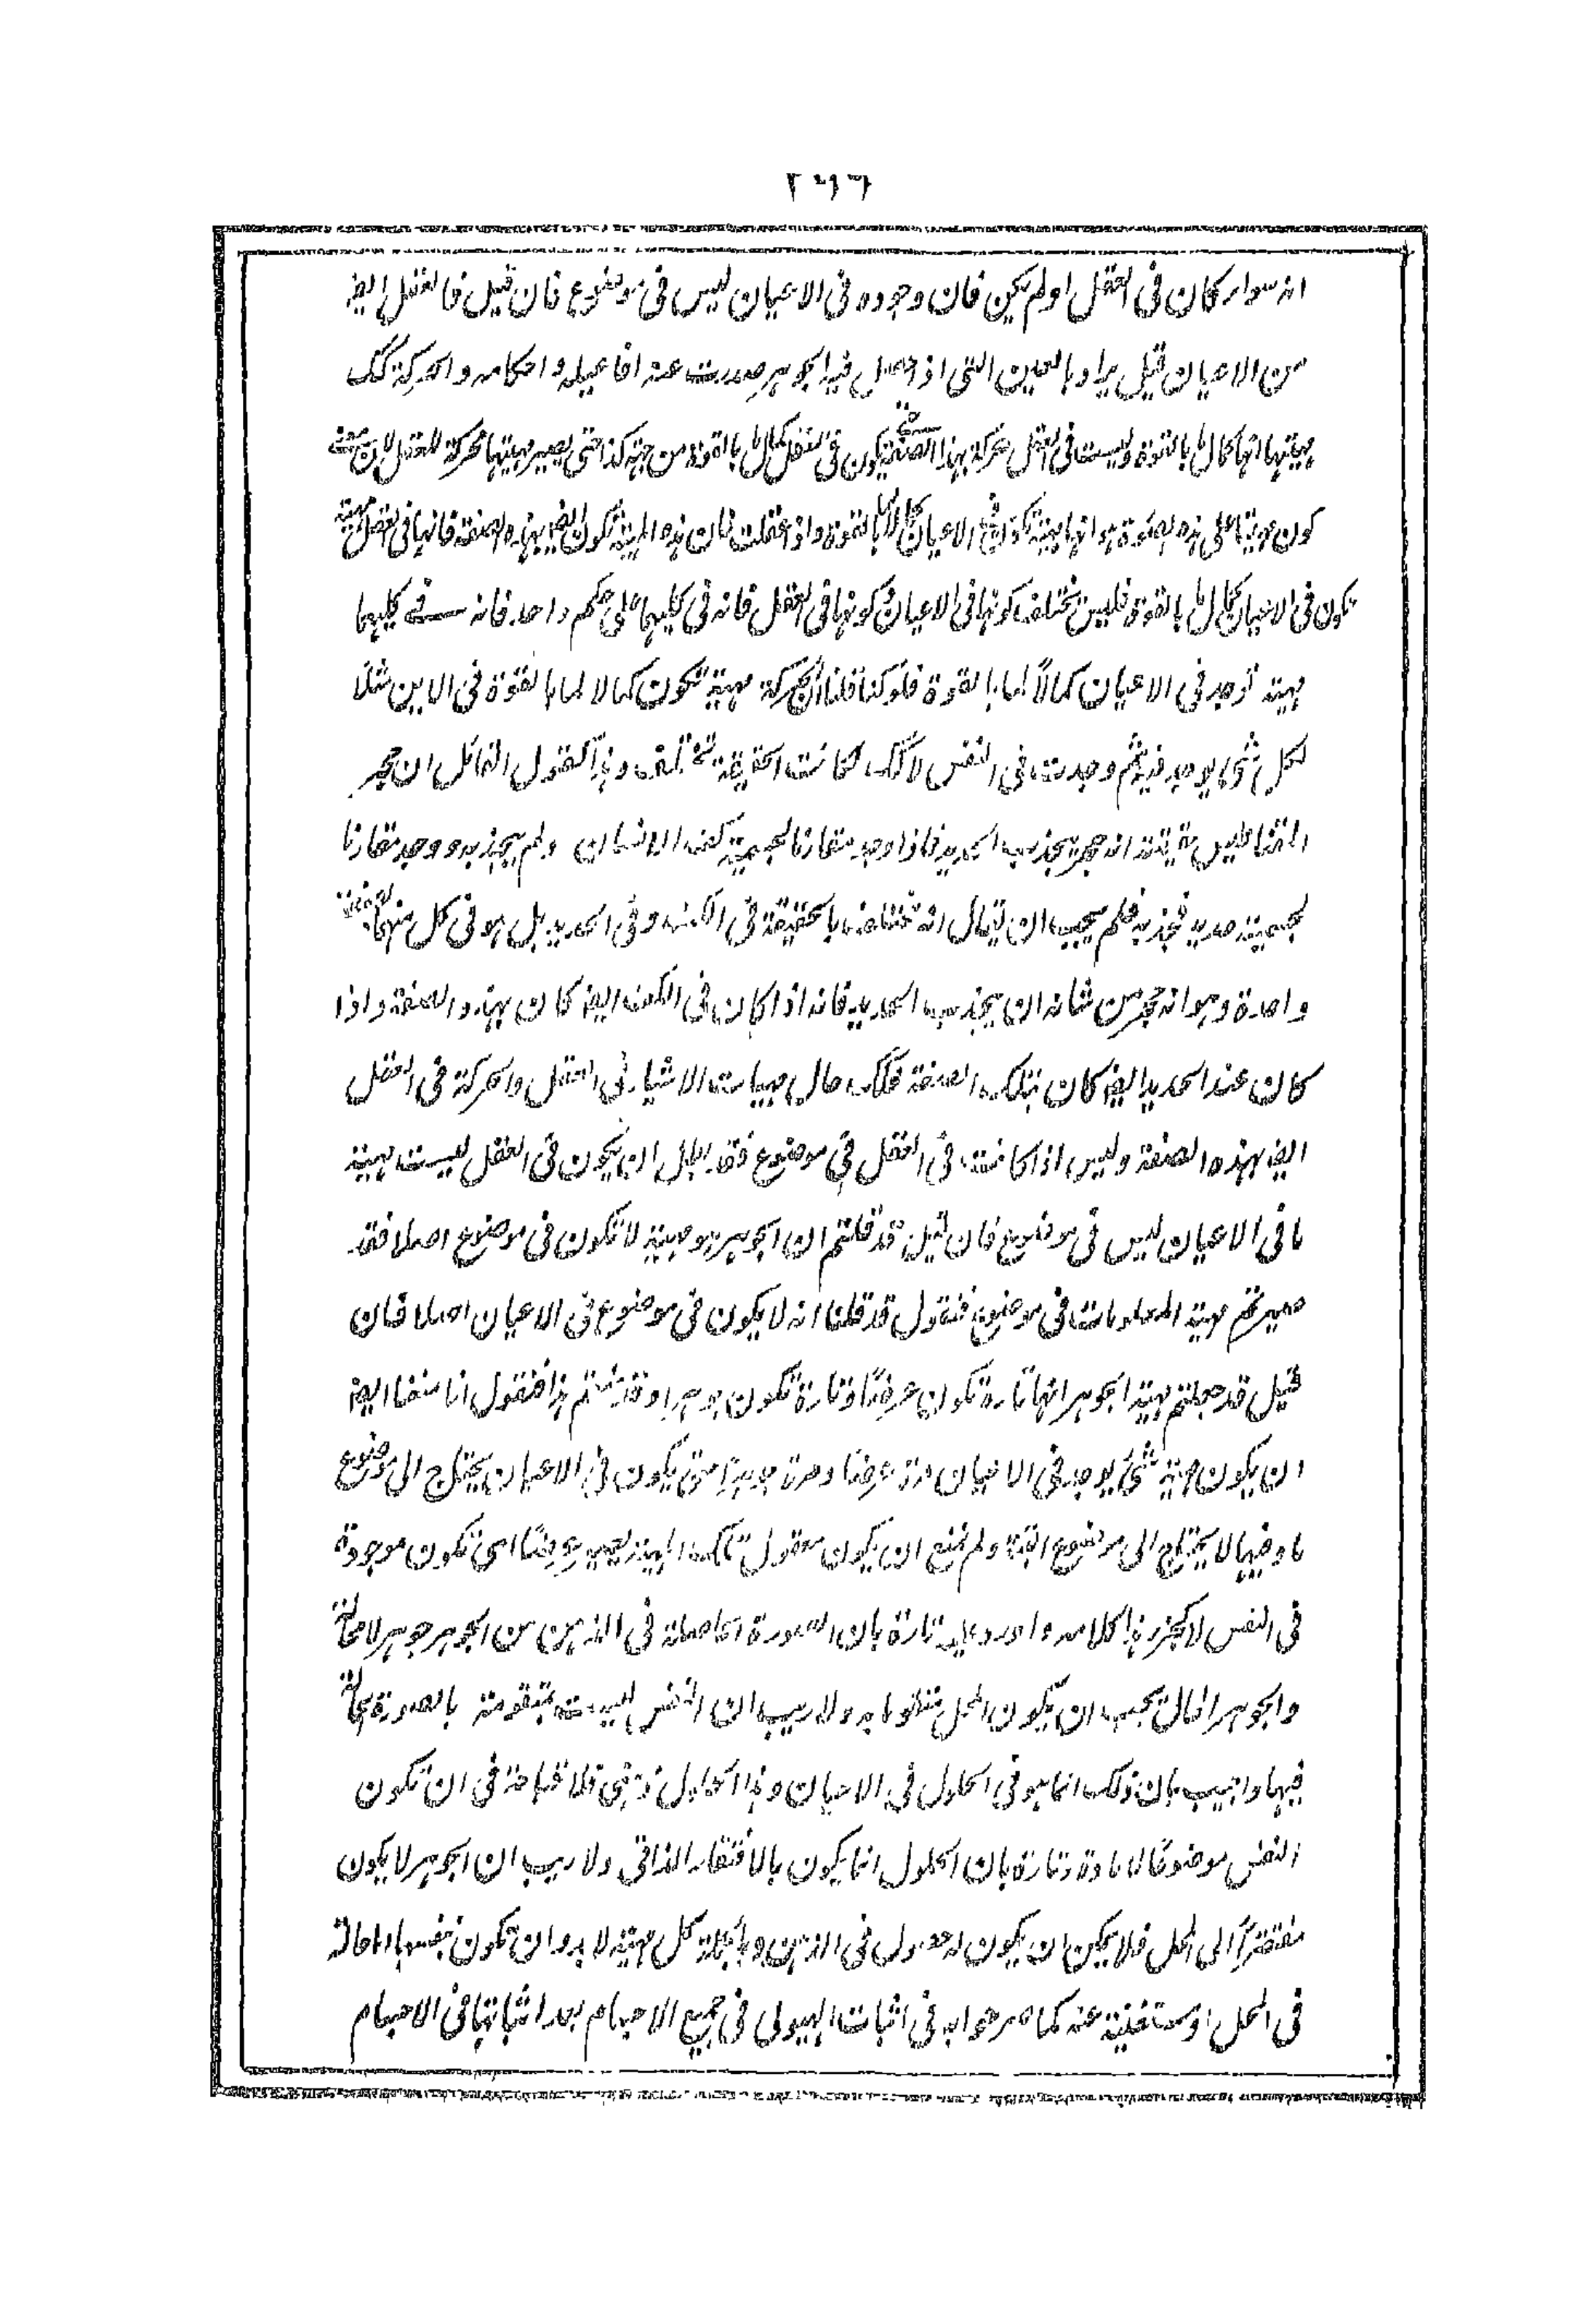 ٢٩٦
انه سواء كان فى العقل او لم يكن فان وجوده فى الاعيان ليس فى موضوع فان قيل فالعقل ايض
من الاعيان قيل يراد بالعين التى اذ حصل فيها الجوهر صدرت عنه افاعيله و احكامه و الحركة كك
مهيتها انها كمال ما بالقوة وليست فى العقل حركة بهذه الصفة حتى يكون فى العقل كمال ما بالقوة من جهة كذا حتى يصير مهيتها محركة للعقل لان معنى
كون مهيتها على هذه الصفة هو انها مهية تكون فى الاعيان كمالا لما بالقوة واذ عقلت فان هذه المهية تكون ايض بهذه الصفة فانها فى العقل مهية
تكون فى الاعيان كمال ما بالقوة فليس يختلف كونها فى الاعيان و كونها فى العقل فانه فى كليهما على حكم واحد فانه فى كليهما
مهية توجد فى الاعيان كمالاً لما بالقوة فلو كنا قلنا ان الحركة مهية تكون كمالا لما بالقوة فى الاين مثلا
لكل شئ يوجد فيه ثم وجدت فى النفس لا كك لكانت الحقيقة تختلف وهذا كقول القائل ان حجر
المقناطيس حقيقته انه حجر يجذب الحديد فاذا وجد مقارنا لجسمية كف الانسان ولم يجذبه و وجد مقارنا
لجسمية حديد فجذبه فلم يجب ان يقال انه مختلف بالحقيقة فى الكف و فى الحديد بل هو فى كل منهما بصفة
واحدة وهو انه حجر من شانه ان يجذب الحديد فانه اذا كان فى الكف ايض كان بهذه الصفة و اذا
كان عند الحديد ايض كان بتلك الصفة فكك حال مهيات الاشياء فى العقل والحركة فى العقل
ايض بهذه الصفة وليس اذا كانت فى العقل فى موضوع فقد بطل ان يكون فى العقل ليست مهية
ما فى الاعيان ليس فى موضوع فان قيل قد قلتم ان الجوهر هو مهية لا تكون فى موضوع اصلا فقد
صيرتم مهية المعلومات فى موضوع فنقول قد قلنا انه لا يكون فى موضوع فى الاعيان اصلا فان
قيل قد جعلتم مهية الجوهر انها تارة تكون عرضًا و تارة تكون جوهرا وقد منعتم هذا فنقول انا منعنا ايض
ان يكون مهية شئ يوجد فى الاعيان مرة عرضا ومرة جوهرا حتى يكون فى الاعيان يحتاج الى موضوع
ما و فيها لا يحتاج الى موضوع البتة ولم نمنع ان يكون معقول تلك المهية يصير عرضًا اى تكون موجودة
فى النفس لا كجزء هذا كلامه و اورد عليه تارة بان الصورة الحاصلة فى الذهن من الجوهر جوهر لا محالة
والجوهر الحال يجب ان يكون المحل متقوما به ولا ريب ان النفس ليست متقومة بالصورة الحالة
فيها واجيب بان ذلك انما هو فى الحلول فى الاعيان وهذا الحلول ذهنى فلا قباحة فى ان تكون
النفس موضوعًا لا مادة وتارة بان الحلول انما يكون بالافتقار الذاتى ولا ريب ان الجوهر لا يكون
مفتقراً الى المحل فلا يمكن ان يكون له حصول فى الذهن وبالجملة كل مهية لا بد و ان تكون بنفسها اما حالة
فى المحل او مستغنية عنه كما صرحوا به فى اثبات الهيولى فى جميع الاجسام بعد اثباتها فى الاجسام